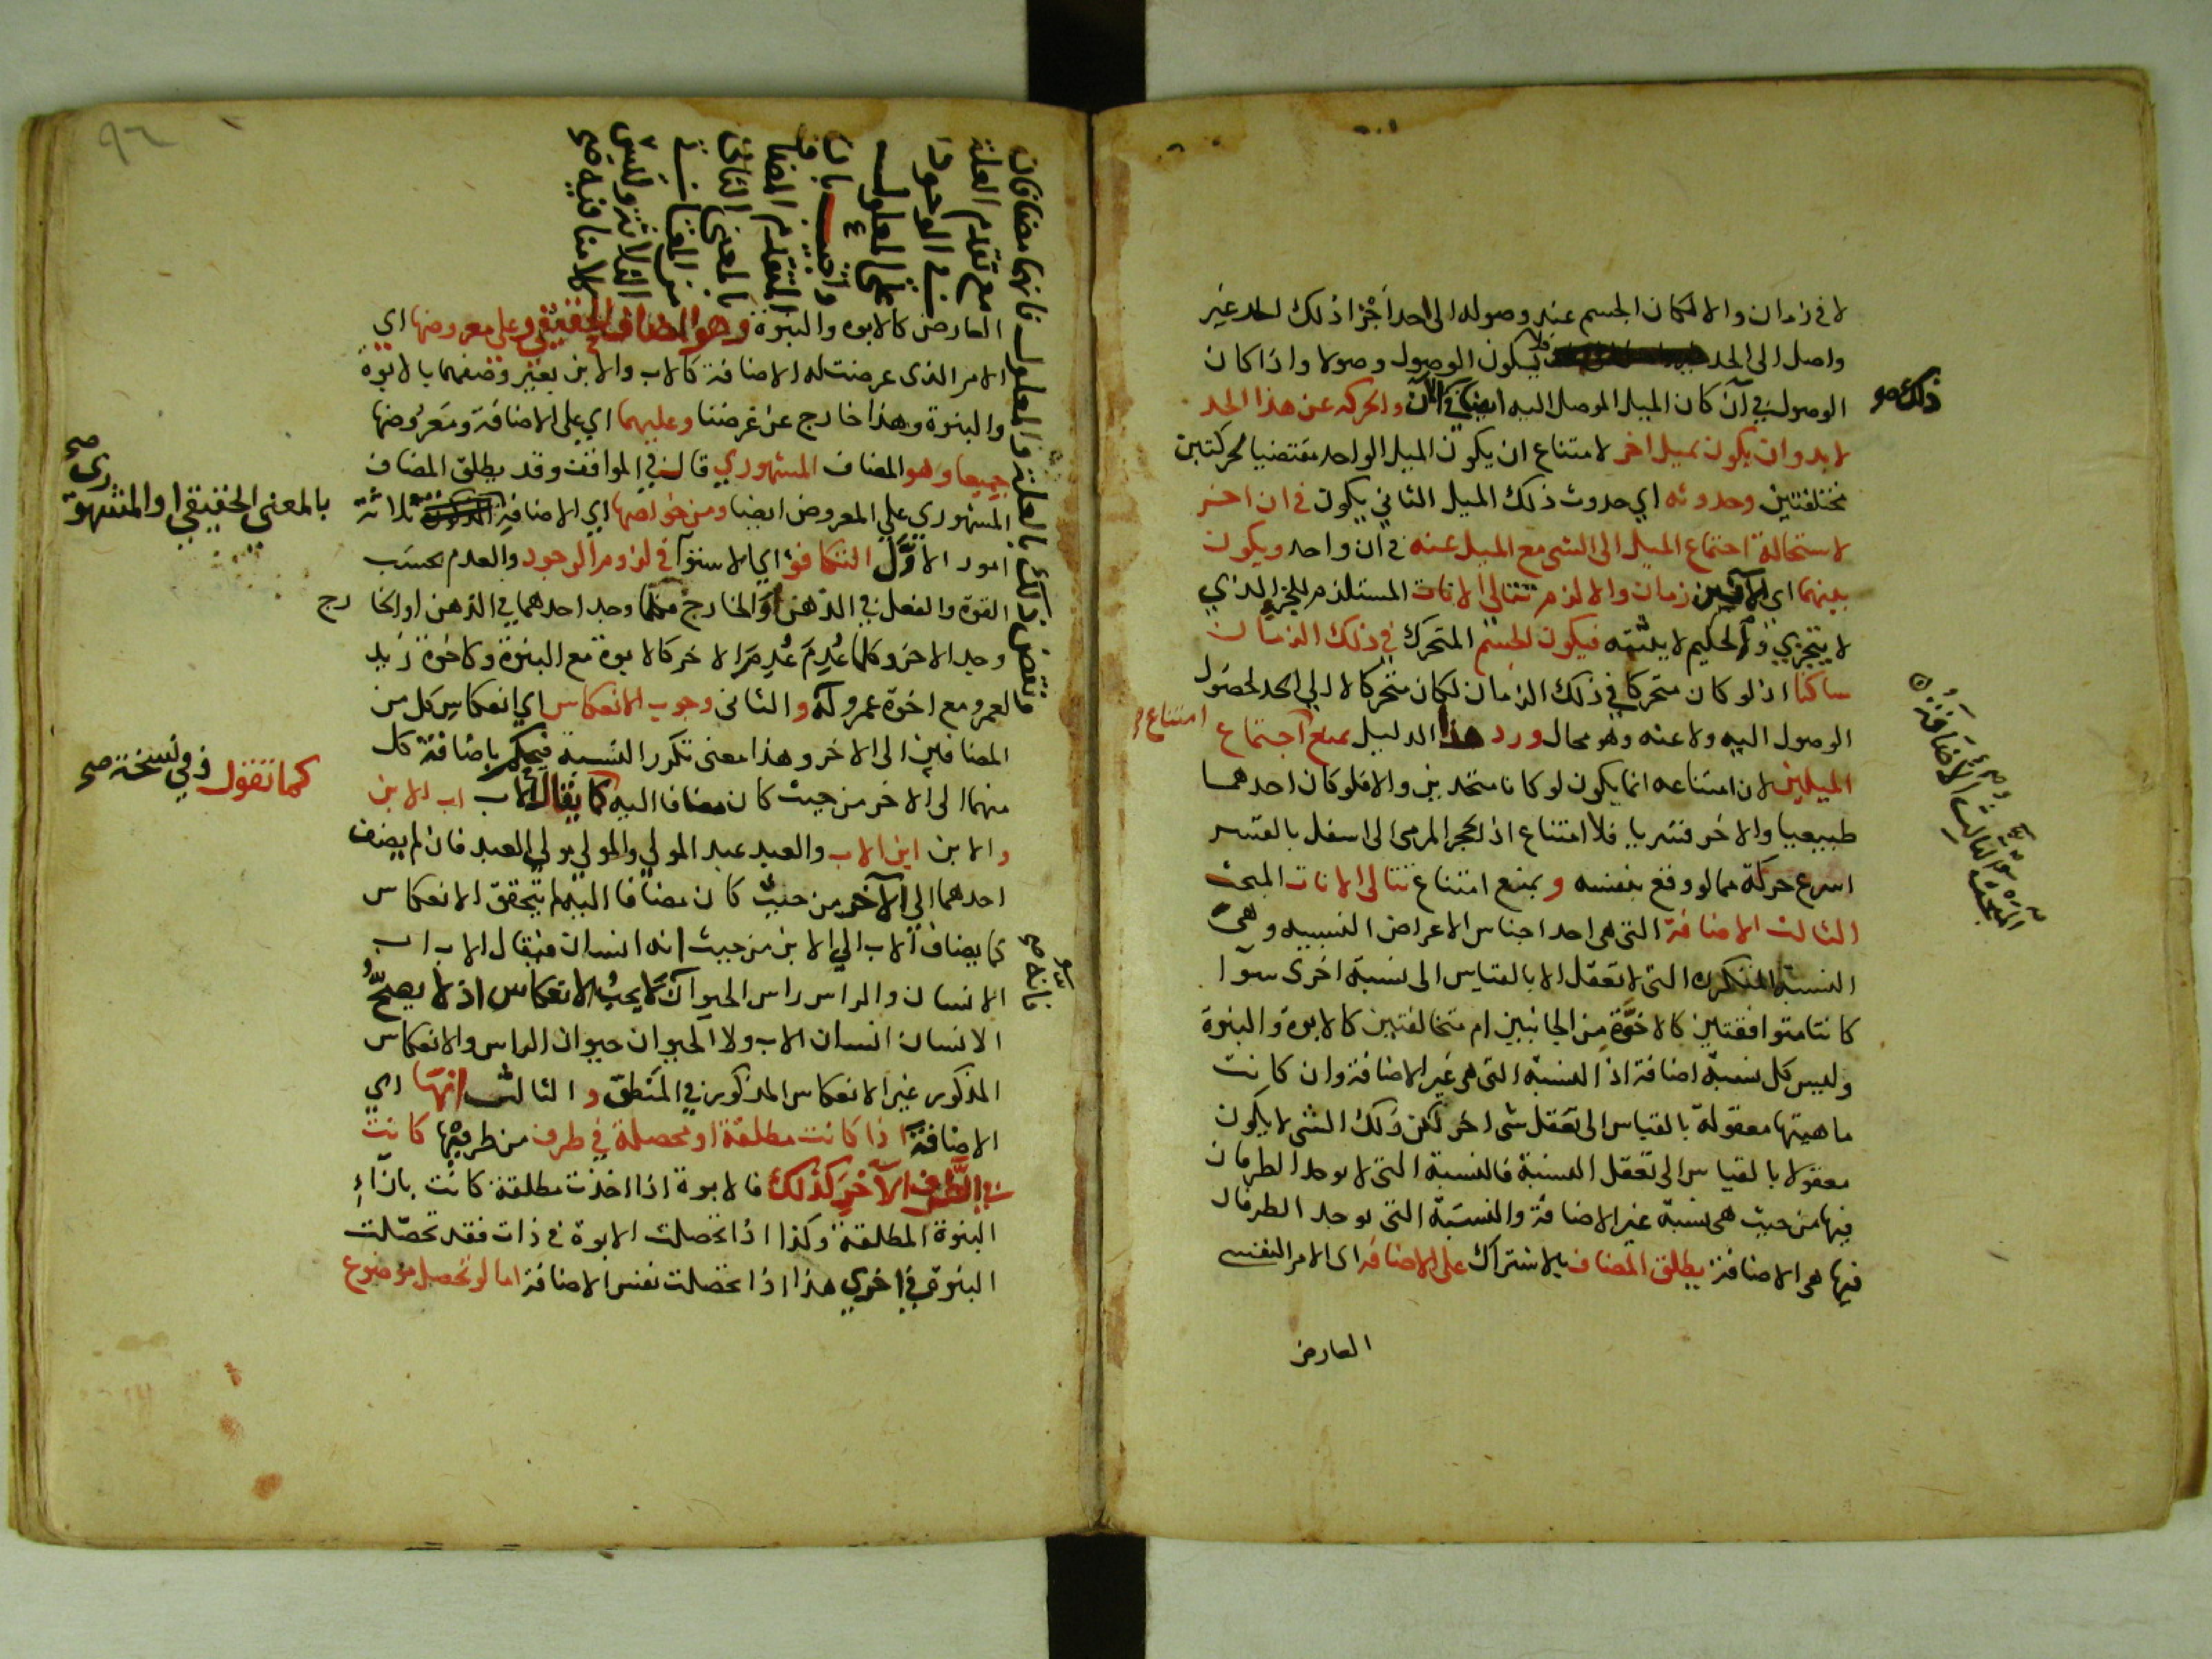 لا في زمان والا لكان الجسم عند وصوله الى احد اجزا ذلك الحد غير
واصل الى الحد فلا يكون الوصول وصولا واذا كان
ذلك صح
الوصول في آن كان الميل الموصل اليه ايضا في الآن والحركه عن هذا الحد
لا بد وان يكون بميل اخر لامتناع ان يكون الميل الواحد مقتضيا لحركتين
مختلفتين وحدوثه اي حدوث ذلك الميل الثاني يكون في ان اخر
لاستحالة اجتماع الميل الى الشي مع الميل عنه في آن واحد ويكون
بينهما اي الآنين زمان والا لزم تتالي الانات المستلزم للجزء الذي
لا يتجزي والحكيم لا يثبته فيكون الجسم المتحرك في ذلك الزمان
ساكنا اذ لو كان متحركا في ذلك الزمان لكان متحركا لا الي الحد لحصول
الوصول اليه ولا عنه وهو محال ورد هذا الدليل بمنع اجتماع
امتناع
الميلين لان امتناعه انما يكون لو كانا متحدين والا فلو كان احدهما
طبيعيا والاخر قسريا فلا امتناع اذ الحجر المرمى الى اسفل بالقسر
اسرع حركة مما لو وقع بنفسه وبمنع امتناع تتالى الانات المبحث
الثالث الاضافة التى هى احد اجناس الاعراض النسبيه وهى
النسبة المتكرره التى لا تعقل الا بالقياس الى نسبة اخرى سوآ
كانتا متوافقتين كالاخوة من الجانبين ام متخالفتين كالابوة والبنوة
وليس كل نسبة اضافة اذ النسبة التى هى غير الاضافة وان كانت
ماهيتها معقولة بالقياس الى تعقل شى اخر لكن ذلك الشى لا يكون
معقولا بالقياس الى تعقل النسبة فالنسبة التى لا يوجد الطرفان
فيها من حيث هى نسبة غير الاضافة والنسبة التى يوجد الطرفان
فيها هى الاضافة يطلق المضاف بالاشتراك على الاضافة اى الامر النفسى
العارض
المبحث الثالث الاضافة
٩٢
العارض كالابوه والبنوة وهو المضاف الحقيقي وعلى معروضها اي
الامر الذى عرضت له الاضافة كالاب والابن بغير وصفهما بالابوة
والبنوة وهذا خارج عن غرضنا وعليهما اي على الاضافة ومعروضها
جميعا وهو المضاف المشهوري قال في المواقف وقد يطلق المضاف
المشهوري على المعروض ايضا ومن خواصها اي الاضافة ثلاثة
بالمعنى الحقيقي او المشهوري صح
امور الاول التكافؤ اي الاستوآ في لزوم الوجود والعدم بحسب
القوة والفعل في الذهن او الخارج فكلما وجد احدهما في الذهن او الخارج
وجد الاخر وكلما عدم عدم الاخر كالابوة مع البنوة وكاخوة زيد
لعمرو مع اخوة عمرو له والثانى وجوب الانعكاس اي انعكاس كل من
المضافين الى الاخر وهذا معنى تكرر النسبة فيحكم باضافة كل
منهما الى الاخر من حيث كان مضافا اليه كما يقال الاب اب الابن
كما تقول وفي نسخة صح
والابن ابن الاب والعبد عبد المولي والمولي مولي العبد فان لم يضف
احدهما الي الآخر من حيث كان مضافا اليه لم يتحقق الانعكاس
كما يضاف الاب الي الابن من حيث انه انسان فيقال الاب اب
الانسان والراس راس الحيوان لا يجب الانعكاس اذ لا يصح
الانسان انسان الاب ولا الحيوان حيوان الراس والانعكاس
المذكور غير الانعكاس المذكور في المنطق والثالث انها اي
الاضافة اذا كانت مطلقة او محصلة في طرف من طرفيها كانت
في الطرف الآخر كذلك فالابوة اذا اخذت مطلقة كانت بازآء
البنوة المطلقة وكذا اذا تحصلت الابوة في ذات فقد تحصلت
البنوة في اخري هذا اذا تحصلت نفس الاضافة اما لو تحصل موضوع
فانهما مضافان
مع تقدم العلة
في الوجود
على المعلول
المتقدم المضا
بالمعنى الثانى
من المعانى
الثلاثة وليس